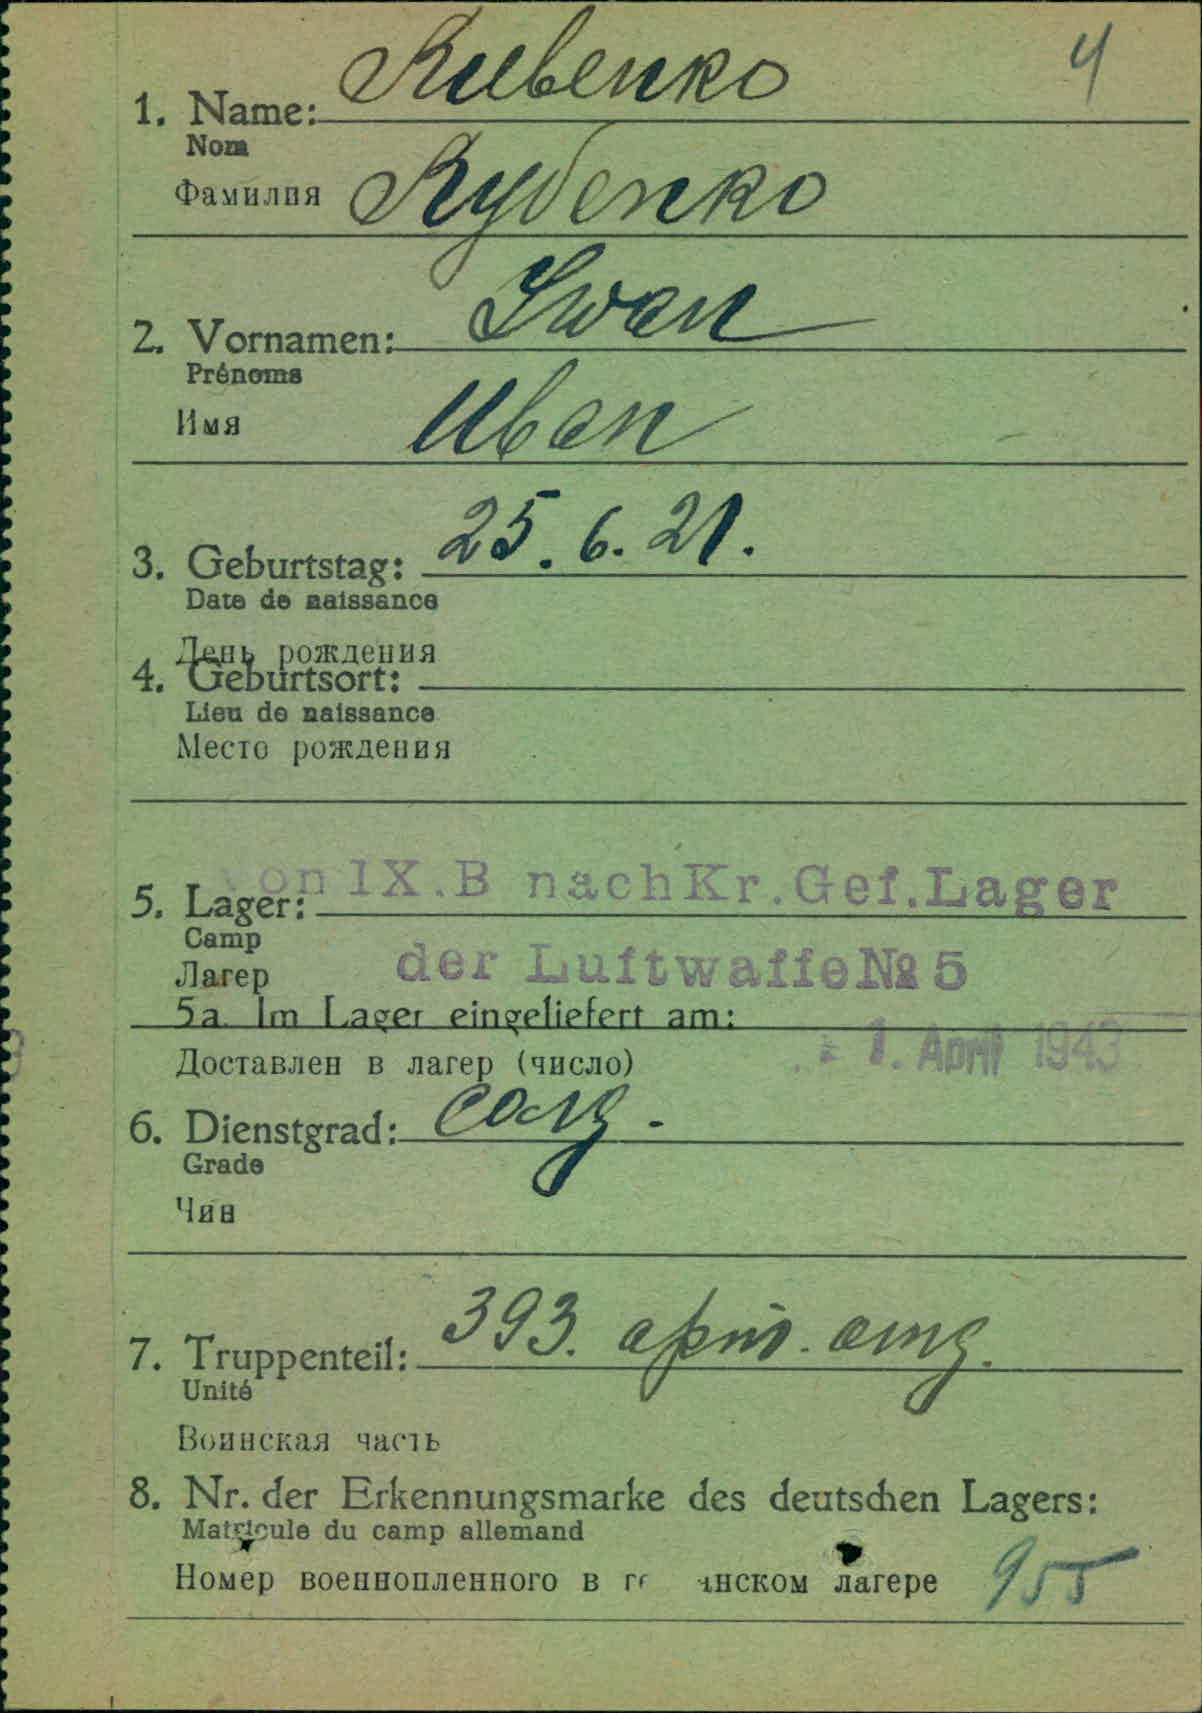 4
Kubenko
1. Name:
Nom
Фамилия Кубенко
Iwan
2. Vornamen:
Prénoms
Имя Иван
3. Geburtstag: 25. 6. 21.
Date de naissance
День рождения
4. Geburtsort:
Lieu de naissance
Место рождения
von IX.B nach Kr.Gef.Lager
5. Lager:
Camp
der Luftwaffe № 5
Лагерь
5a. Im Lager eingeliefert am:
1. April 1943
Доставлен в лагер (число)
6. Dienstgrad: солд.
Grade
Чин
393.
7. Truppenteil:
Unité
Воинская часть
8. Nr. der Erkennungsmarke des deutschen Lagers:
Matricule du camp allemand
Номер военнопленного в ге анском лагере 955